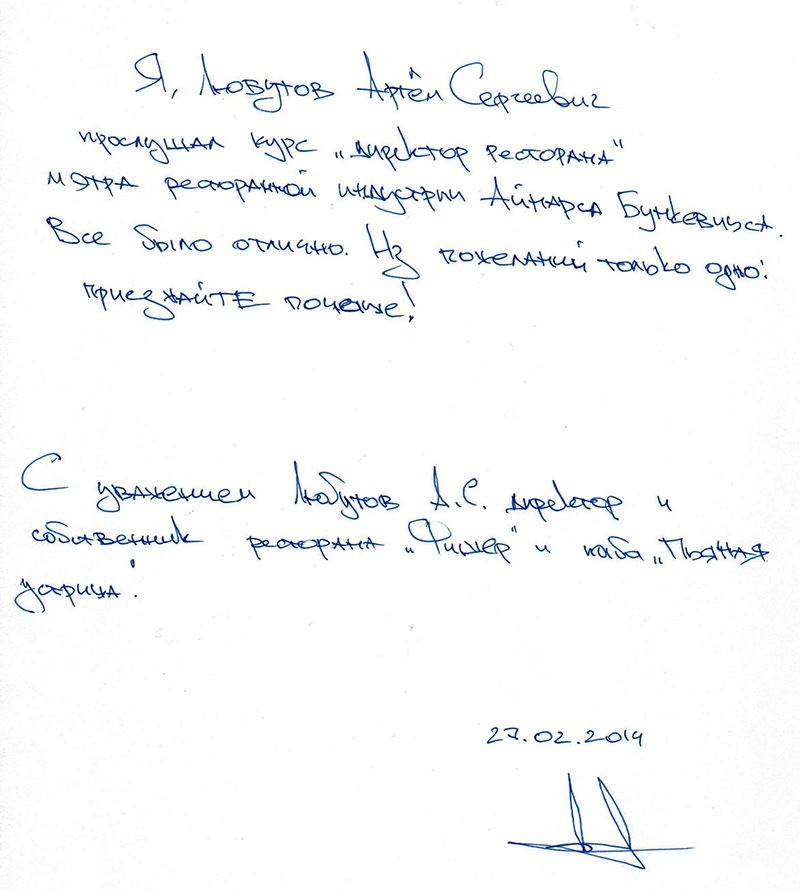 Я, Любутов Артём Сергеевич
прослушал курс „директор ресторана"
мэтра ресторанной индустрии Айнарса Бункевичса.
Все было отлично. Из пожеланий только одно:
приезжайте почаще!
С уважением Любутов А.С. директор и
собственник ресторана „Фишер" и паба „Пьяная
устрица".
27.02.2014